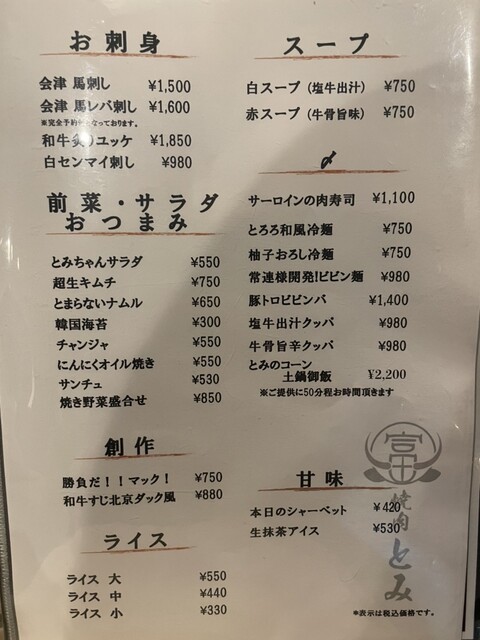 お刺身
会津 馬刺し ¥1,500
会津 馬レバ刺し ¥1,600
※完全予約制となっております。
和牛炙りユッケ ¥1,850
白センマイ刺し ¥980
前菜・サラダ
おつまみ
とみちゃんサラダ ¥550
超生キムチ ¥750
とまらないナムル ¥650
韓国海苔 ¥300
チャンジャ ¥550
にんにくオイル焼き ¥550
サンチュ ¥530
焼き野菜盛合せ ¥850
創作
勝負だ！！マック！ ¥750
和牛すじ北京ダック風 ¥880
ライス
ライス 大 ¥550
ライス 中 ¥440
ライス 小 ¥330
スープ
白スープ（塩牛出汁） ¥750
赤スープ（牛骨旨味） ¥750
〆
サーロインの肉寿司 ¥1,100
とろろ和風冷麺 ¥750
柚子おろし冷麺 ¥750
常連様開発!ビビン麺 ¥980
豚トロビビンバ ¥1,400
塩牛出汁クッパ ¥980
牛骨旨辛クッパ ¥980
とみのコーン
土鍋御飯 ¥2,200
※ご提供に50分程お時間頂きます
甘味
本日のシャーベット ¥420
生抹茶アイス ¥530
富
焼肉とみ
*表示は税込価格です。